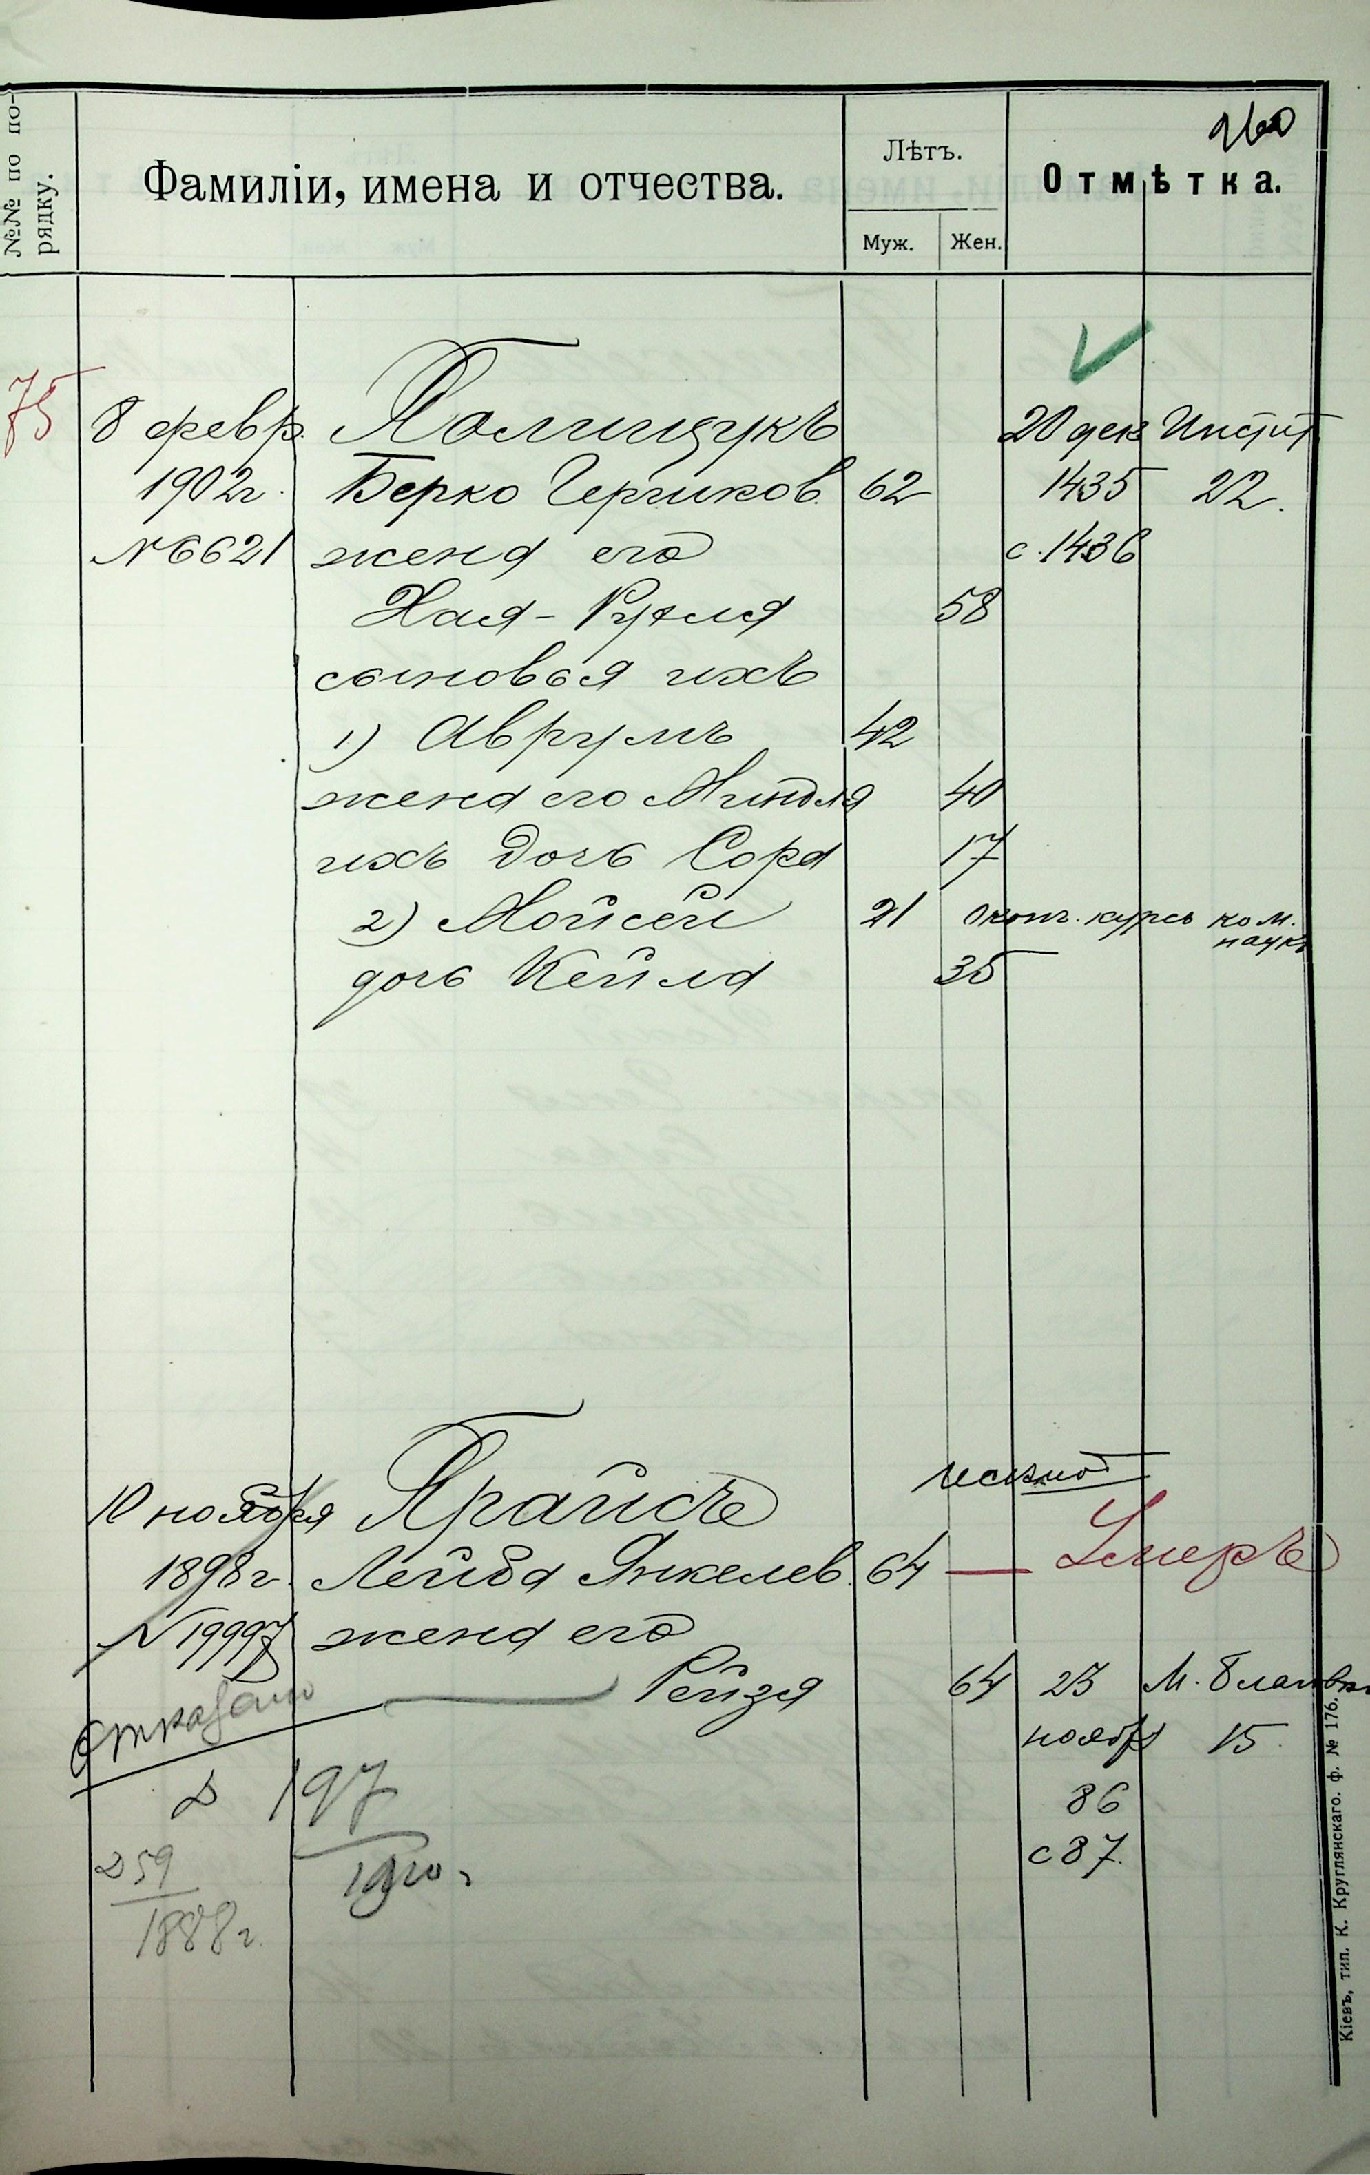 260
№№ по по-
рядку.
Фамиліи, имена и отчества.
Лѣтъ.
Муж.
Жен.
Отмѣтка.
75
8 февр. Полищукъ 20 дек Инстит
1902г. Берко Гершков. 62 1435 22.
№ 6621 жена его с. 1436
Хая - Рухля 58
сыновья ихъ
1) Аврумъ 42
жена его Миндля 40
ихъ дочь Сора 17
2) Мойсей 21 Оконч. курсъ ком.
наукъ
дочь Кейла 35
10 ноября Прайсъ
1898г. Лейба Янкелев. 64 — Умеръ
№ 19997 жена его
Рейзя 64 23 М. Благов
Отказано
ноября 15.
197 86
1910 г. с 87.
259
1888 г.
Кіевъ, тип. К. Круглянскаго. ф. № 176.